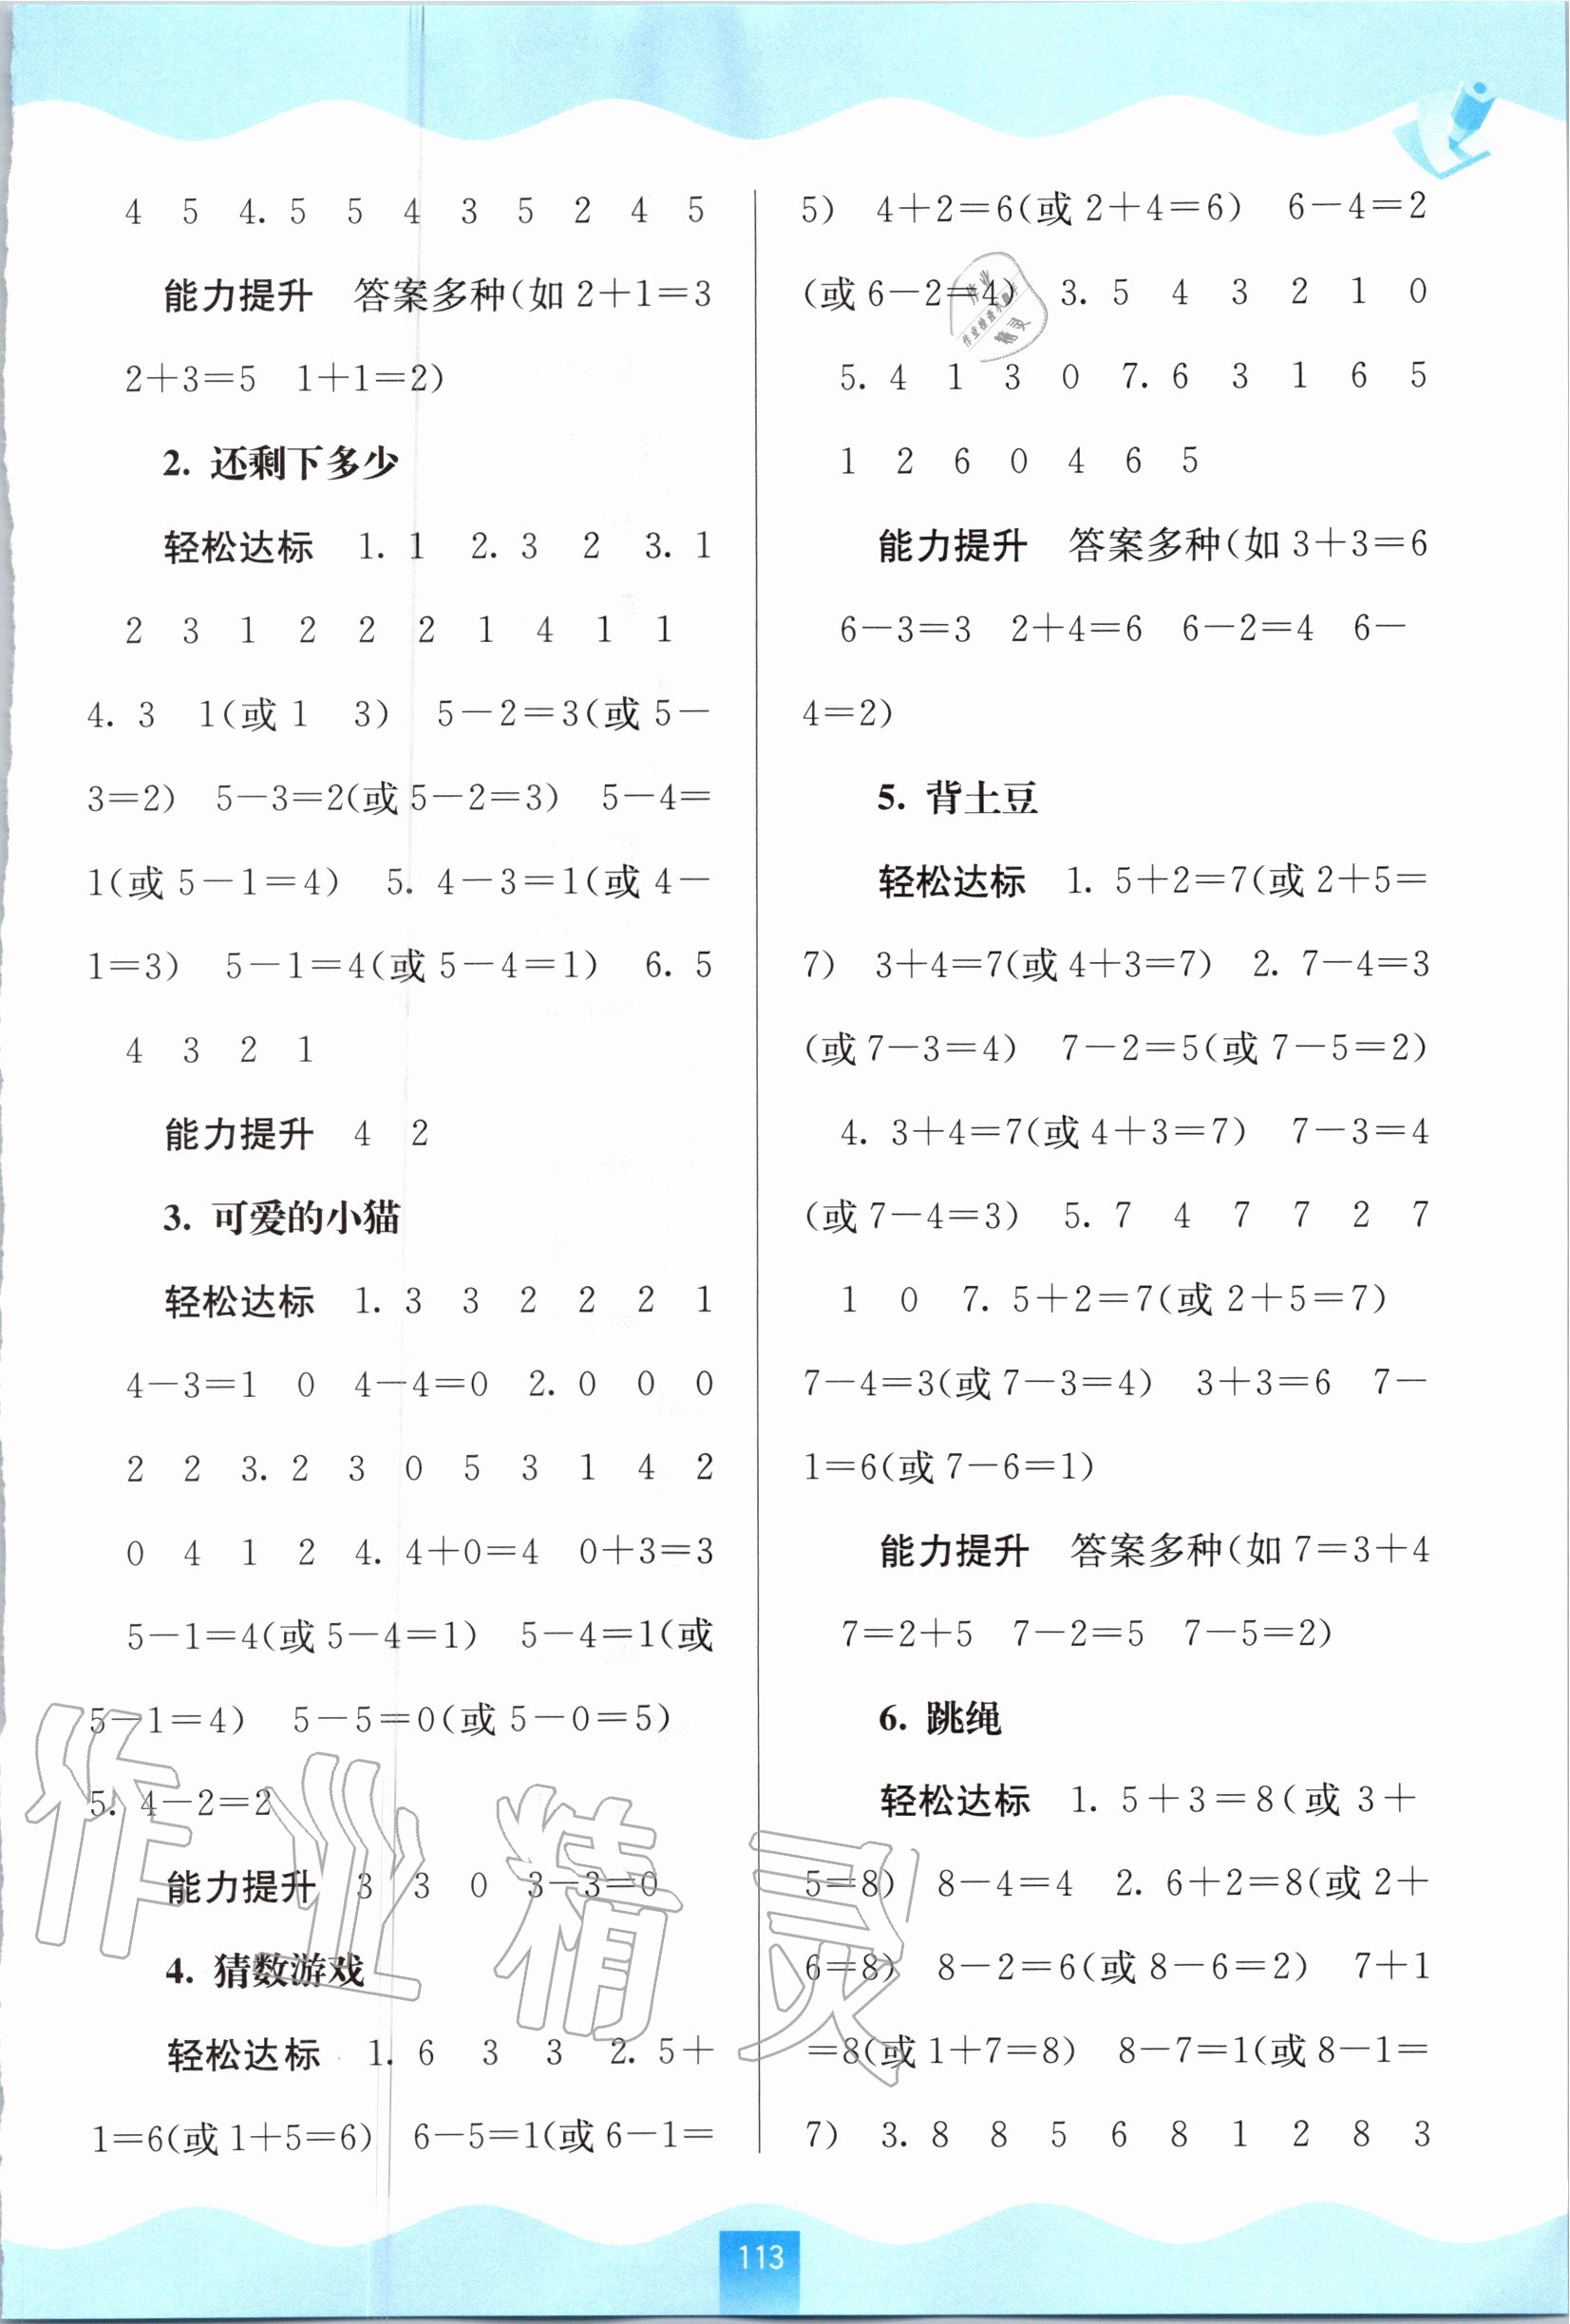 4 5 4. 5 5 4 3 5 2 4 5
能力提升 答案多种(如 2+1=3
2+3=5 1+1=2)
2. 还剩下多少
轻松达标 1. 1 2. 3 2 3. 1
2 3 1 2 2 2 1 4 1 1
4. 3 1(或 1 3) 5-2=3(或 5-
3=2) 5-3=2(或 5-2=3) 5-4=
1(或 5-1=4) 5. 4-3=1(或 4-
1=3) 5-1=4(或 5-4=1) 6. 5
4 3 2 1
能力提升 4 2
3. 可爱的小猫
轻松达标 1. 3 3 2 2 2 1
4-3=1 0 4-4=0 2. 0 0 0
2 2 3. 2 3 0 5 3 1 4 2
0 4 1 2 4. 4+0=4 0+3=3
5-1=4(或 5-4=1) 5-4=1(或
5-1=4) 5-5=0(或 5-0=5)
5. 4-2=2
能力提升 3 3 0 3-3=0
4. 猜数游戏
轻松达标 1. 6 3 3 2. 5+
1=6(或 1+5=6) 6-5=1(或 6-1=
5) 4+2=6(或 2+4=6) 6-4=2
(或 6-2=4) 3. 5 4 3 2 1 0
5. 4 1 3 0 7. 6 3 1 6 5
1 2 6 0 4 6 5
能力提升 答案多种(如 3+3=6
6-3=3 2+4=6 6-2=4 6-
4=2)
5. 背土豆
轻松达标 1. 5+2=7(或 2+5=
7) 3+4=7(或 4+3=7) 2. 7-4=3
(或 7-3=4) 7-2=5(或 7-5=2)
4. 3+4=7(或 4+3=7) 7-3=4
(或 7-4=3) 5. 7 4 7 7 2 7
1 0 7. 5+2=7(或 2+5=7)
7-4=3(或 7-3=4) 3+3=6 7-
1=6(或 7-6=1)
能力提升 答案多种(如 7=3+4
7=2+5 7-2=5 7-5=2)
6. 跳绳
轻松达标 1. 5+3=8(或 3+
5=8) 8-4=4 2. 6+2=8(或 2+
6=8) 8-2=6(或 8-6=2) 7+1
=8(或 1+7=8) 8-7=1(或 8-1=
7) 3. 8 8 5 6 8 1 2 8 3
113
作业精灵
作业
作业检查小助手
精灵